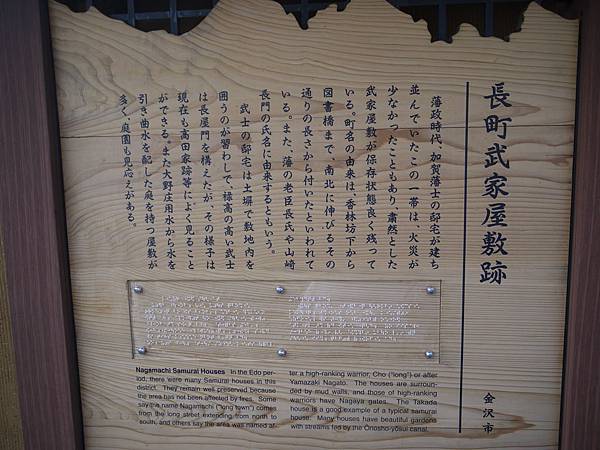 長町武家屋敷跡
金沢市
藩政時代、加賀藩士の邸宅が建ち
並んでいたこの一帯は、火災が
少なかったこともあり、粛然とした
武家屋敷が保存状態良く残って
いる。町名の由来は、香林坊下から
図書橋まで、南北に伸びるその
通りの長さから付いたといわれて
いる。また、藩の老臣長氏や山崎
長門の氏名に由来するともいう。
武士の邸宅は土塀で敷地内を
囲うのが習わしで、禄高の高い武士
は長屋門を構えたが、その様子は
現在も高田家跡等によく見ること
ができる。また大野庄用水から水を
引き曲水を配した庭を持つ屋敷が
多く、庭園も見応えがある。
Nagamachi Samurai Houses In the Edo per-
iod, there were many Samurai houses in this
district. They remain well preserved because
the area has not been affected by fires. Some
say the name Nagamachi ("long town") comes
from the long street extending from north to
south, and others say the area was named af-
ter a high-ranking warrior, Cho ("long") or after
Yamazaki Nagato. The houses are surroun-
ded by mud walls, and those of high-ranking
warriors have Nagaya gates. The Takada
house is a good example of a typical samurai
house. Many houses have beautiful gardens
with streams fed by the Ōnosho-yōsui canal.